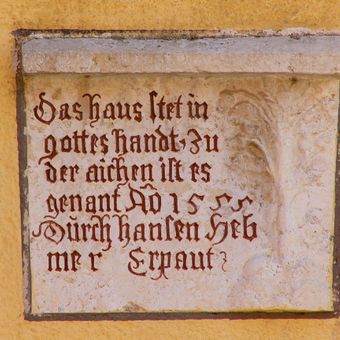 Das haus stet in
gottes handt, Zu
der aichen ist es
genant Aō 1555
Durch hansen Heb
me r Erpaut